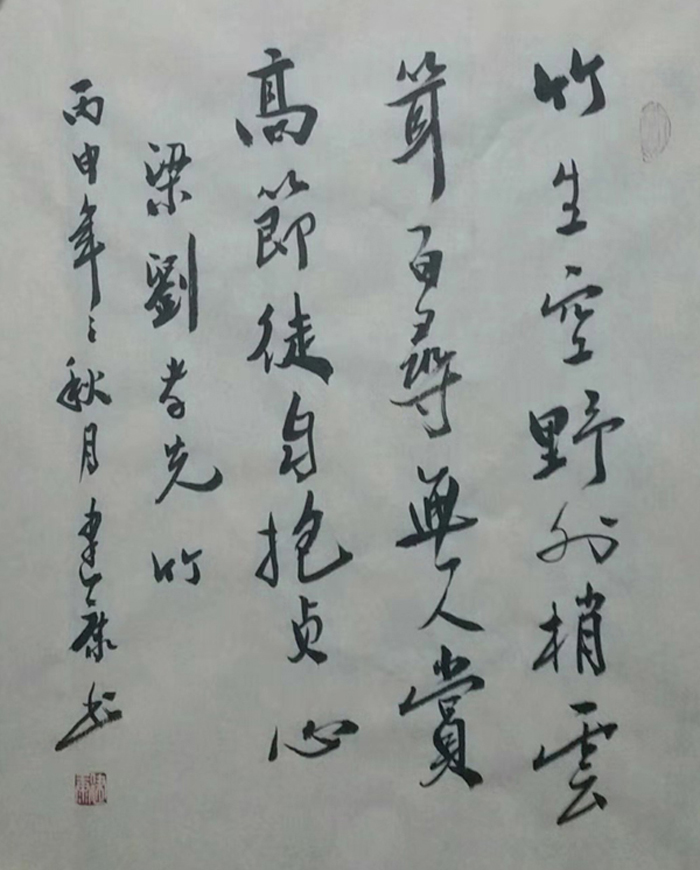 竹生空野外梢雲
聳百尋無人賞
高節徒自抱貞心
梁劉孝先竹
丙申年之秋月建康书